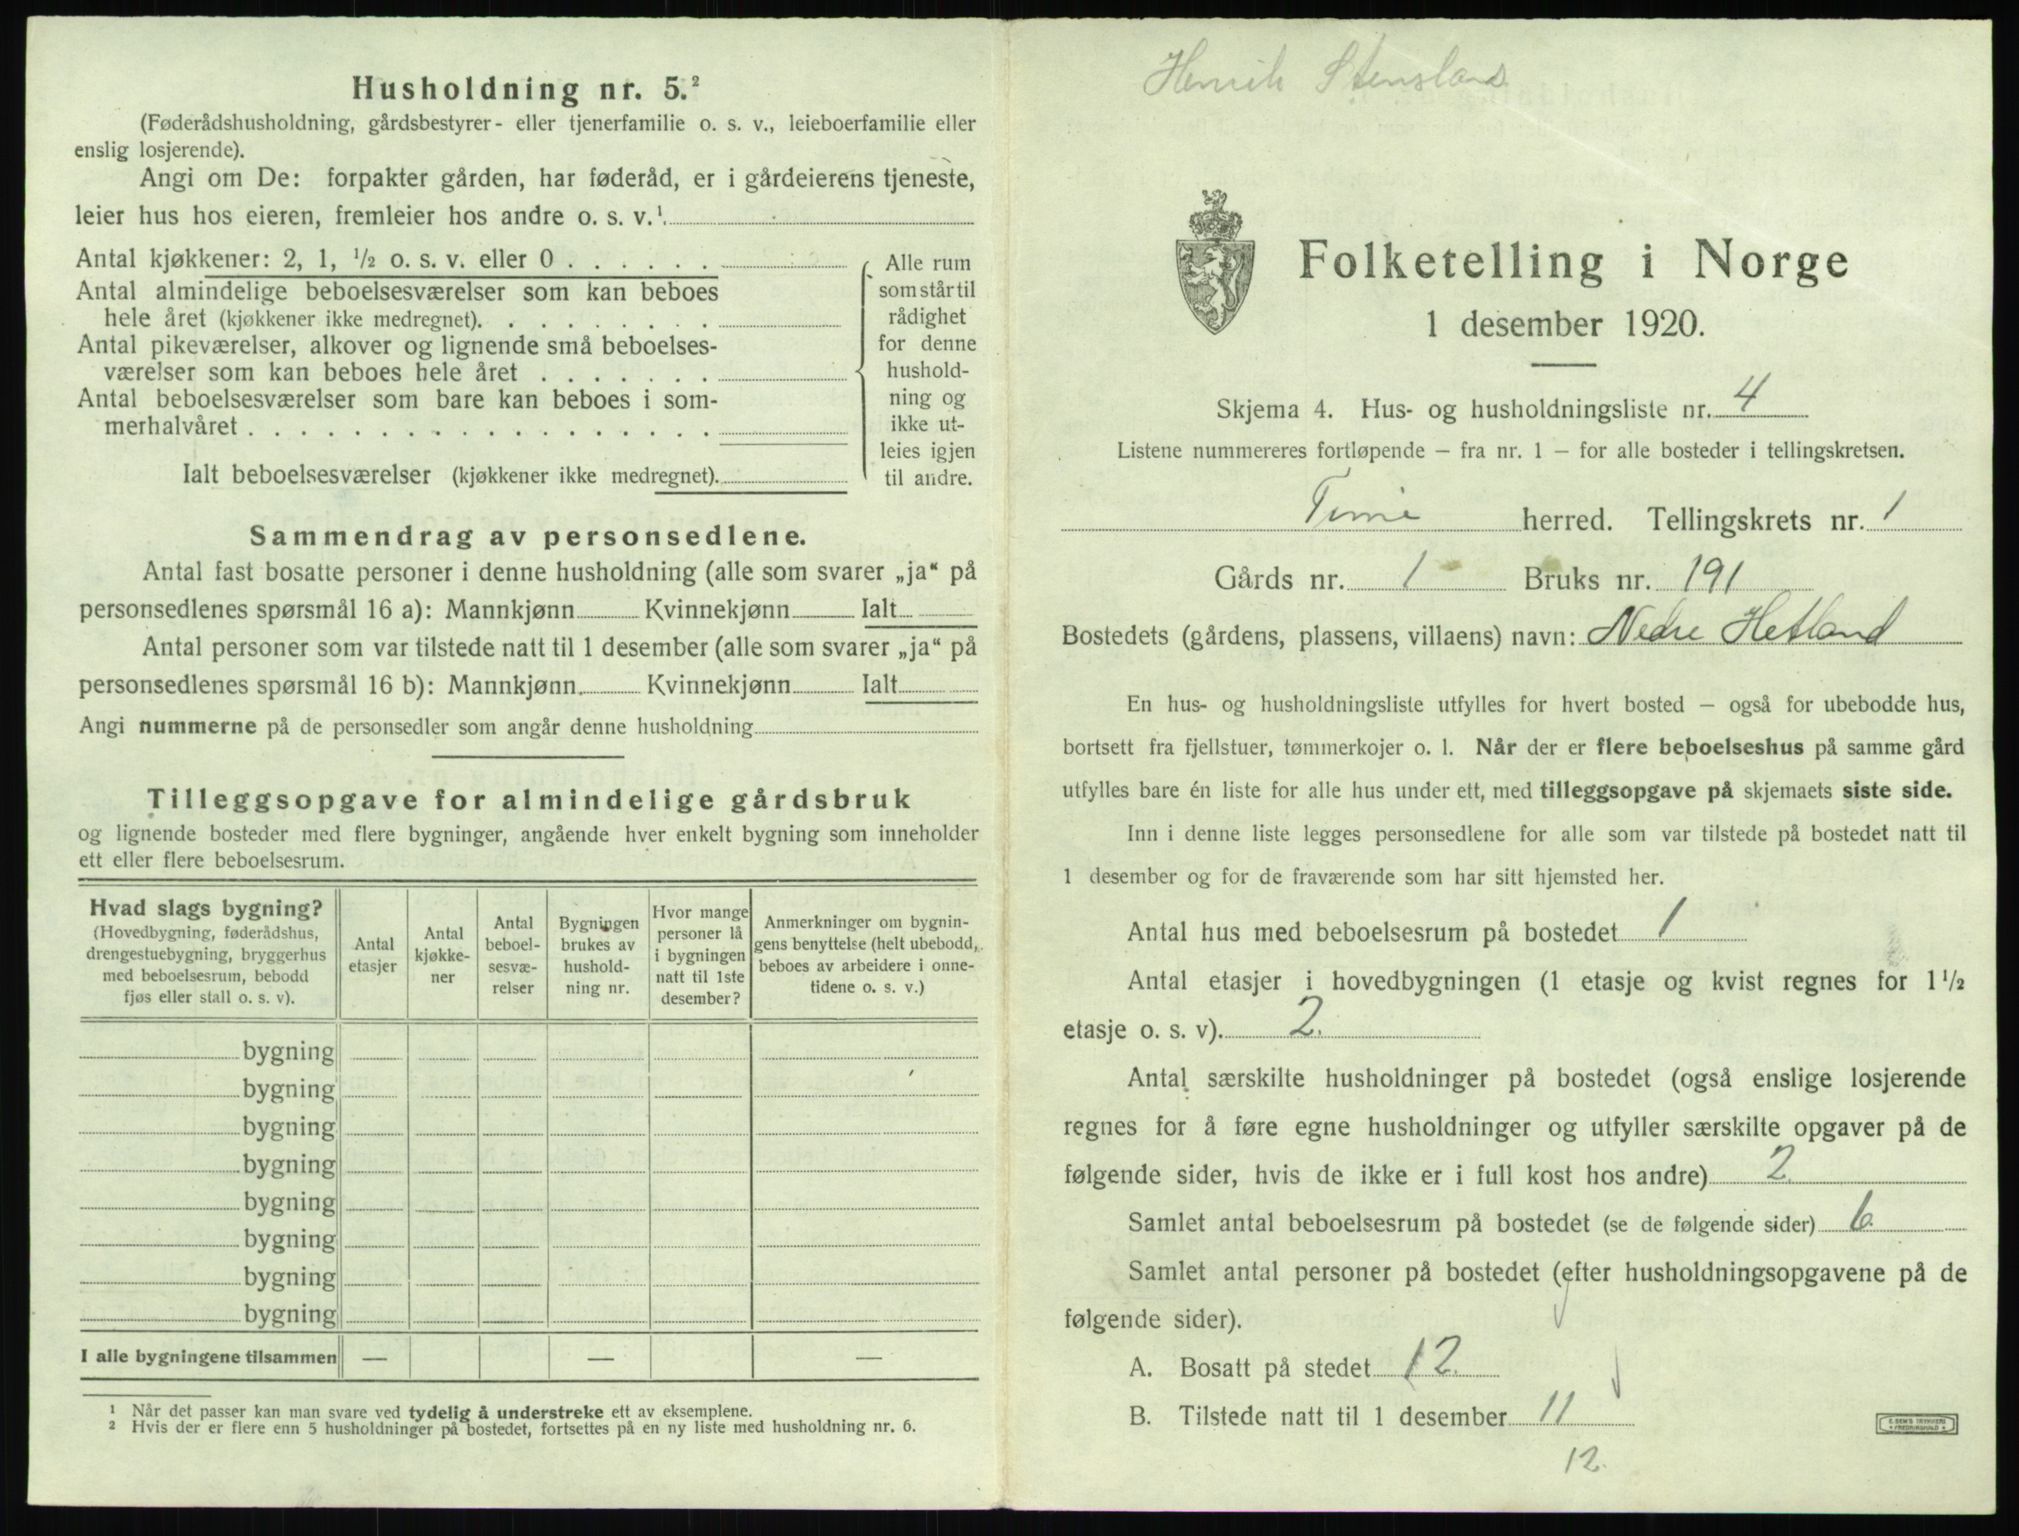 Husholdning nr. 5.²
(Føderådshusholdning, gårdsbestyrer- eller tjenerfamilie o. s. v., leieboerfamilie eller
enslig losjerende).
Angi om De: forpakter gården, har føderåd, er i gårdeierens tjeneste,
leier hus hos eieren, fremleier hos andre o. s. v.¹
Antal kjøkkener: 2, 1, ½ o. s. v. eller 0 . . . . . .
Antal almindelige beboelsesværelser som kan beboes
hele året (kjøkkener ikke medregnet). . . . . . . . .
Antal pikeværelser, alkover og lignende små beboelses-
værelser som kan beboes hele året . . . . . . .
Antal beboelsesværelser som bare kan beboes i som-
merhalvåret . . . . . . . . . . . . . . . . . .
Ialt beboelsesværelser (kjøkkener ikke medregnet).
Alle rum
som står til
rådighet
for denne
hushold-
ning og
ikke ut-
leies igjen
til andre.
Sammendrag av personsedlene.
Antal fast bosatte personer i denne husholdning (alle som svarer „ja“ på
personsedlenes spørsmål 16 a): Mannkjønn Kvinnekjønn Ialt
Antal personer som var tilstede natt til 1 desember (alle som svarer „ja“ på
personsedlenes spørsmål 16 b): Mannkjønn Kvinnekjønn Ialt
Angi nummerne på de personsedler som angår denne husholdning
Tilleggsopgave for almindelige gårdsbruk
og lignende bosteder med flere bygninger, angående hver enkelt bygning som inneholder
ett eller flere beboelsesrum.
Hvad slags bygning?
(Hovedbygning, føderådshus,
drengestuebygning, bryggerhus
med beboelsesrum, bebodd
fjøs eller stall o. s. v).
Antal
etasjer
Antal
kjøkke-
ner
Antal
beboel-
sesvæ-
relser
Bygningen
brukes av
hushold-
ning nr.
Hvor mange
personer lå
i bygningen
natt til 1ste
desember?
Anmerkninger om bygnin-
gens benyttelse (helt ubebodd,
beboes av arbeidere i onne-
tidene o. s. v.)
bygning
bygning
bygning
bygning
bygning
bygning
bygning
bygning
I alle bygningene tilsammen — — —
¹ Når det passer kan man svare ved tydelig å understreke ett av eksemplene.
² Hvis der er flere enn 5 husholdninger på bostedet, fortsettes på en ny liste med husholdning nr. 6.
Henrik Stensland
Folketelling i Norge
1 desember 1920.
Skjema 4. Hus- og husholdningsliste nr. 4
Listene nummereres fortløpende — fra nr. 1 — for alle bosteder i tellingskretsen.
Time herred. Tellingskrets nr. 1
Gårds nr. 1 Bruks nr. 191
Bostedets (gårdens, plassens, villaens) navn: Nedre Hetland
En hus- og husholdningsliste utfylles for hvert bosted — også for ubebodde hus,
bortsett fra fjellstuer, tømmerkojer o. l. Når der er flere beboelseshus på samme gård
utfylles bare én liste for alle hus under ett, med tilleggsopgave på skjemaets siste side.
Inn i denne liste legges personsedlene for alle som var tilstede på bostedet natt til
1 desember og for de fraværende som har sitt hjemsted her.
Antal hus med beboelsesrum på bostedet 1
Antal etasjer i hovedbygningen (1 etasje og kvist regnes for 1½
etasje o. s. v). 2.
Antal særskilte husholdninger på bostedet (også enslige losjerende
regnes for å føre egne husholdninger og utfyller særskilte opgaver på de
følgende sider, hvis de ikke er i full kost hos andre) 2.
Samlet antal beboelsesrum på bostedet (se de følgende sider) 6
Samlet antal personer på bostedet (efter husholdningsopgavene på de
følgende sider).
A. Bosatt på stedet 12.
B. Tilstede natt til 1 desember 11
12.